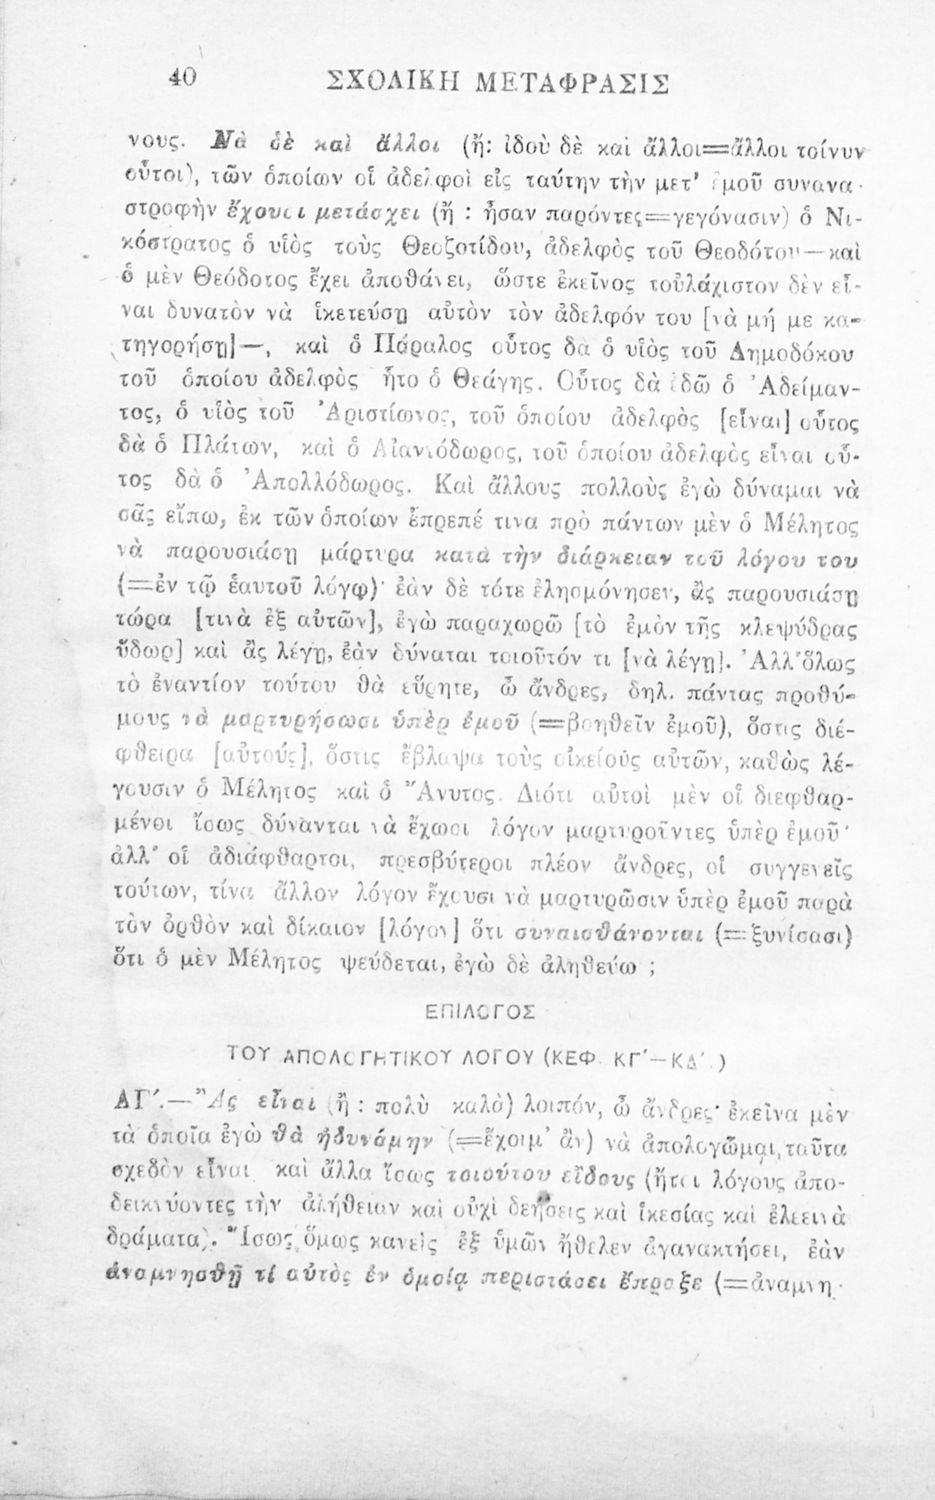 40 ΣΧΟΛΙΚΗ ΜΕΤΑΦΡΑΣΙΣ
νους. Νὰ δὲ καὶ ἄλλοι (ἤ: ἰδοὺ δὲ καὶ ἄλλοι=ἄλλοι τοίνυν
οὗτοι), τῶν ὁποίων οἱ ἀδελφοὶ εἰς ταύτην τὴν μετ' ἐμοῦ συνανα-
στροφὴν ἔχουσι μετάσχει (ἤ : ἦσαν παρόντες=γεγόνασιν) ὁ Νι-
κόστρατος ὁ υἱὸς τοὺς Θεοζοτίδου, ἀδελφὸς τοῦ Θεοδότου—καὶ
ὁ μὲν Θεόδοτος ἔχει ἀποθάνει, ὥστε ἐκεῖνος τοὐλάχιστον δὲν εἶ-
ναι δυνατὸν νὰ ἱκετεύσῃ αὐτὸν τὸν ἀδελφόν του [νὰ μή με κα-
τηγορήσῃ]—, καὶ ὁ Πάραλος οὗτος δὰ ὁ υἱὸς τοῦ Δημοδόκου
τοῦ ὁποίου ἀδελφὸς ἦτο ὁ Θεάγης. Οὗτος δὰ ἐδῶ ὁ Ἀδείμαν-
τος, ὁ υἱὸς τοῦ Ἀριστίωνος, τοῦ ὁποίου ἀδελφὸς [εἶναι] οὗτος
δὰ ὁ Πλάτων, καὶ ὁ Αἰαντόδωρος, τοῦ ὁποίου ἀδελφὸς εἶναι οὗ-
τος δὰ ὁ Ἀπολλόδωρος. Καὶ ἄλλους πολλοὺς ἐγὼ δύναμαι νὰ
σᾶς εἴπω, ἐκ τῶν ὁποίων ἔπρεπέ τινα πρὸ πάντων μὲν ὁ Μέλητος
νὰ παρουσιάσῃ μάρτυρα κατὰ τὴν διάρκειαν τοῦ λόγου του
(=ἐν τῷ ἑαυτοῦ λόγῳ)· ἐὰν δὲ τότε ἐλησμόνησεν, ἂς παρουσιάσῃ
τώρα [τινὰ ἐξ αὐτῶν], ἐγὼ παραχωρῶ [τὸ ἐμὸν τῆς κλεψύδρας
ὕδωρ] καὶ ἂς λέγῃ, ἐὰν δύναται τοιοῦτόν τι [νὰ λέγῃ]. Ἀλλ' ὅλως
τὸ ἐναντίον τούτου θὰ εὕρητε, ὦ ἄνδρες, δηλ. πάντας προθύ-
μους νὰ μαρτυρήσωσι ὑπὲρ ἐμοῦ (=βοηθεῖν ἐμοῦ), ὅστις διέ-
φθειρα [αὐτούς], ὅστις ἔβλαψα τοὺς οἰκείους αὐτῶν, καθὼς λέ-
γουσιν ὁ Μέλητος καὶ ὁ Ἄνυτος. Διότι αὐτοὶ μὲν οἱ διεφθαρ-
μένοι ἴσως δύνανται νὰ ἔχωσι λόγον μαρτυροῦντες ὑπὲρ ἐμοῦ·
ἀλλ' οἱ ἀδιάφθαρτοι, πρεσβύτεροι πλέον ἄνδρες, οἱ συγγενεῖς
τούτων, τίνα ἄλλον λόγον ἔχουσι νὰ μαρτυρῶσιν ὑπὲρ ἐμοῦ παρὰ
τὸν ὀρθὸν καὶ δίκαιον [λόγον] ὅτι συναισθάνονται (=ξυνίσασι)
ὅτι ὁ μὲν Μέλητος ψεύδεται, ἐγὼ δὲ ἀληθεύω ;
ΕΠΙΛΟΓΟΣ
ΤΟΥ ΑΠΟΛΟΓΗΤΙΚΟΥ ΛΟΓΟΥ (ΚΕΦ. ΚΓ'—ΚΔ'.)
ΛΓ'.—Ἂς εἶναι (ἤ : πολὺ καλὸ) λοιπόν, ὦ ἄνδρες· ἐκεῖνα μὲν
τὰ ὁποῖα ἐγὼ θὰ ἠδυνάμην (=ἔχοιμ' ἂν) νὰ ἀπολογῶμαι, ταῦτα
σχεδὸν εἶναι καὶ ἄλλα ἴσως τοιούτου εἴδους (ἤτοι λόγους ἀπο-
δεικνύοντες τὴν ἀλήθειαν καὶ οὐχὶ δεήσεις καὶ ἱκεσίας καὶ ἐλεεινὰ
δράματα). Ἴσως ὅμως κανεὶς ἐξ ὑμῶν ἤθελεν ἀγανακτήσει, ἐὰν
ἀναμνησθῇ τί αὐτὸς ἐν ὁμοίᾳ περιστάσει ἔπραξε (=ἀναμνη-